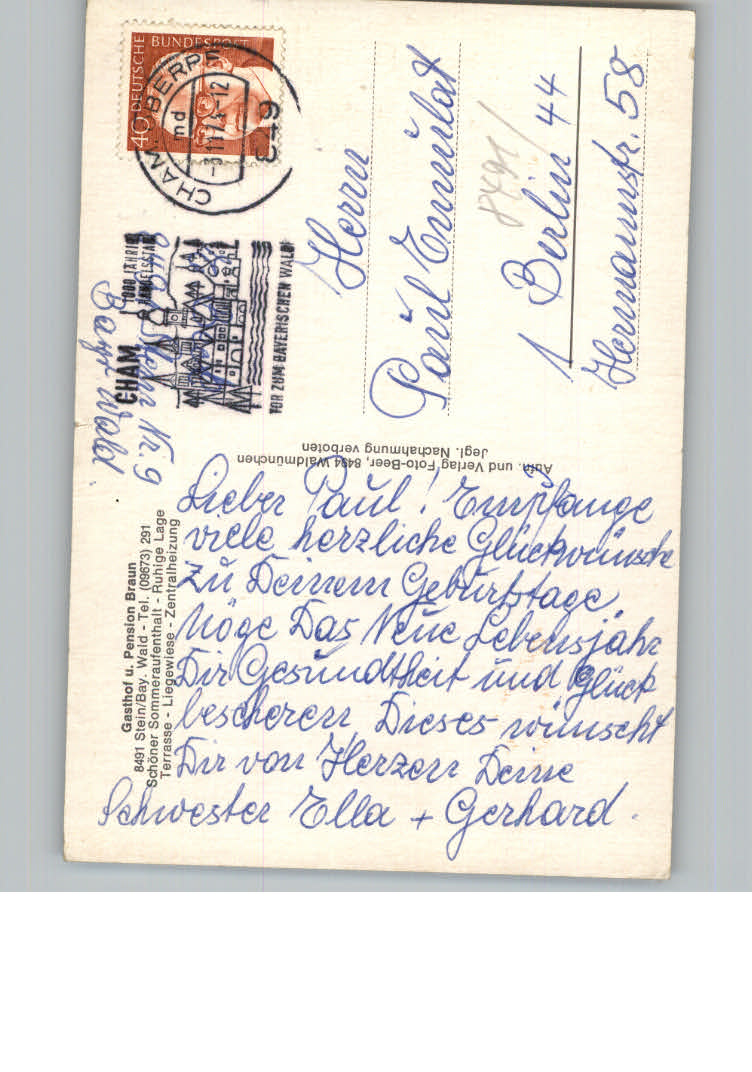 Gasthof u. Pension Braun
8491 Stein/Bay. Wald - Tel. (09673) 291
Schöner Sommeraufenthalt - Ruhige Lage
Terrasse - Liegewiese - Zentralheizung
Lieber Paul! Empfange
viele herzliche Glückwünsche
zu Deinem Geburtstage.
Möge Das Neue Lebensjahr
Dir Gesundtheit und Glück
bescheren Dieses wünscht
Dir von Herzen Deine
Schwester Ella + Gerhard.
Aufn. und Verlag Foto-Beer, 8494 Waldmünchen
Jegl. Nachahmung verboten
Nr. 9
Bayr Wald.
CHAM
1000 JÄHRIGE
TOR ZUM BAYERISCHEN WALD
DEUTSCHE BUNDESPOST
40
CHAM
md
849
Herrn
Paul
8491/
1 Berlin 44
Hermannstr. 58